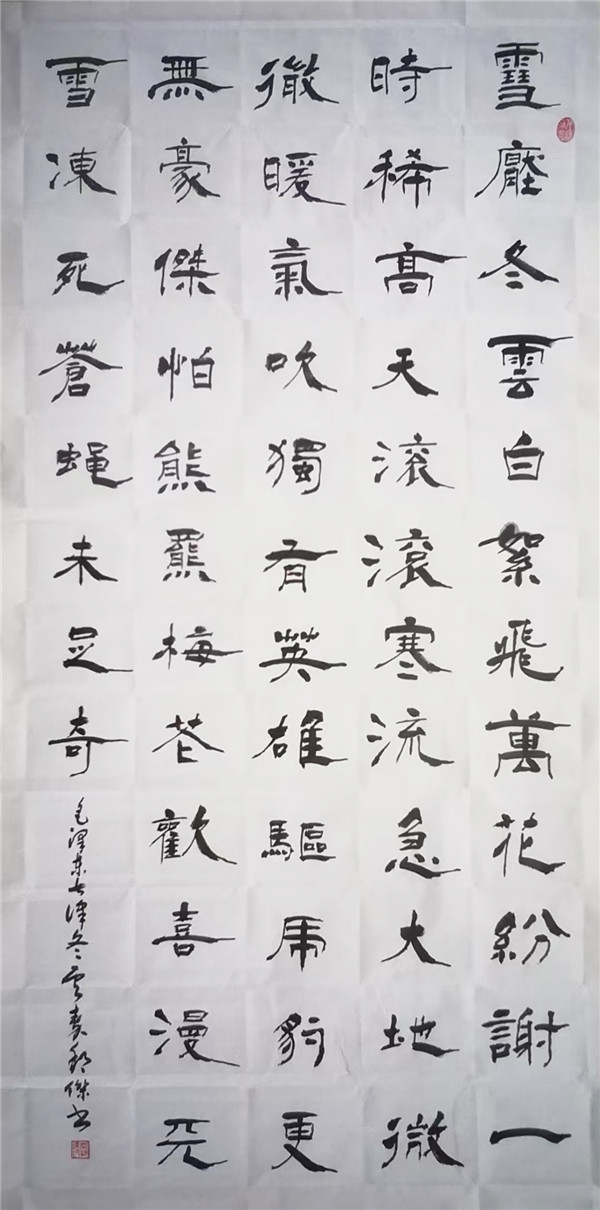 雪壓冬雲白絮飛萬花紛謝一
時稀高天滾滾寒流急大地微
微暖氣吹獨有英雄驅虎豹更
無豪傑怕熊羆梅花歡喜漫天
雪凍死蒼蝇未足奇
毛澤東七律冬雲袁傑书